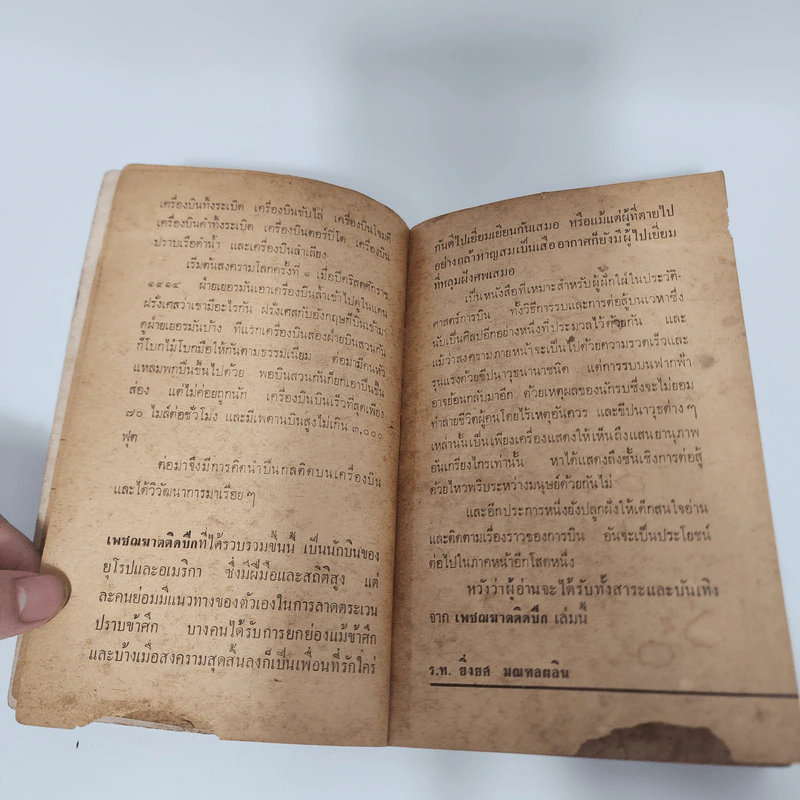 เครื่องบินทิ้งระเบิด เครื่องบินขับไล่ เครื่องบินโจมตี
เครื่องบินดำทิ้งระเบิด เครื่องบินตอร์ปิโด เครื่องบิน
ปราบเรือดำน้ำ และเครื่องบินลำเลียง
เริ่มต้นสงครามโลกครั้งที่ ๑ เมื่อปีคริสตศักราช
๑๙๑๔ ฝ่ายเยอรมันเอาเครื่องบินล้ำเข้าไปดูในแดน
ฝรั่งเศสว่าเขามีอะไรกัน ฝรั่งเศสกับอังกฤษก็บินเข้ามา
ดูฝ่ายเยอรมันบ้าง ที่แรกเครื่องบินสองฝ่ายบินสวนกัน
ก็โบกไม้โบกมือให้กันตามธรรมเนียม ต่อมามีคนหัว
แหลมพกปืนขึ้นไปด้วย พอบินสวนกันก็ยกเอาปืนขึ้น
ส่อง แต่ไม่ค่อยถูกนัก เครื่องบินบินเร็วที่สุดเพียง
๗๐ ไมล์ต่อชั่วโมง และมีเพดานบินสูงไม่เกิน ๓,๐๐๐
ฟุต
ต่อมาจึงมีการคิดนำปืนกลติดบนเครื่องบิน
และได้วิวัฒนาการมาเรื่อย ๆ
เพชฌฆาตติดปีกที่ได้รวบรวมขึ้นนี้ เป็นนักบินของ
ยุโรปและอเมริกา ซึ่งมีฝีมือและสถิติสูง แต่
ละคนย่อมมีแนวทางของตัวเองในการลาดตระเวน
ปราบข้าศึก บางคนได้รับการยกย่องแม้ข้าศึก
และบ้างเมื่อสงครามสุดสิ้นลงก็เป็นเพื่อนที่รักใคร่
กันดีไปเยี่ยมเยียนกันเสมอ หรือแม้แต่ผู้ที่ตายไป
อย่างกล้าหาญสมเป็นเสืออากาศก็ยังมีผู้ไปเยี่ยม
ที่หลุมฝังศพเสมอ
เป็นหนังสือที่เหมาะสำหรับผู้ฝักใฝ่ในประวัติ-
ศาสตร์การบิน ทั้งวิธีการรบและการต่อสู้บนเวหาซึ่ง
นับเป็นศิลปอีกอย่างหนึ่งที่ประมวลไว้ด้วยกัน และ
แม้ว่าสงครามภายหน้าจะเป็นไปด้วยความรวดเร็วและ
รุนแรงด้วยขีปนาวุธนานาชนิด แต่การรบบนฟากฟ้า
อาจย้อนกลับมาอีก ด้วยเหตุผลของนักรบซึ่งจะไม่ยอม
ทำลายชีวิตผู้คนโดยไร้เหตุอันควร และขีปนาวุธต่าง ๆ
เหล่านั้นเป็นเพียงเครื่องแสดงให้เห็นถึงแสนยานุภาพ
อันเกรียงไกรเท่านั้น หาได้แสดงถึงชั้นเชิงการต่อสู้
ด้วยไหวพริบระหว่างมนุษย์ด้วยกันไม่
และอีกประการหนึ่งยังปลูกฝังให้เด็กสนใจอ่าน
และติดตามเรื่องราวของการบิน อันจะเป็นประโยชน์
ต่อไปในภาคหน้าอีกโสดหนึ่ง
หวังว่าผู้อ่านจะได้รับทั้งสาระและบันเทิง
จาก เพชฌฆาตติดปีก เล่มนี้
ร.ท. ยิ่งยศ มณฑลผลิน